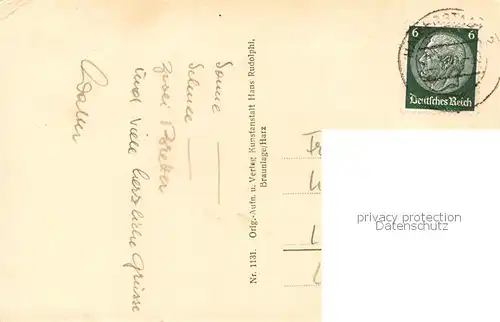 Sonne
Schnee
zwei Bretter
und viele herzliche Grüsse
Nr. 1131. Orig.-Aufn. u. Verlag Kunstanstalt Hans Rudolphi,
Braunlage/Harz
6 6
Deutsches Reich
privacy protection
Datenschutz